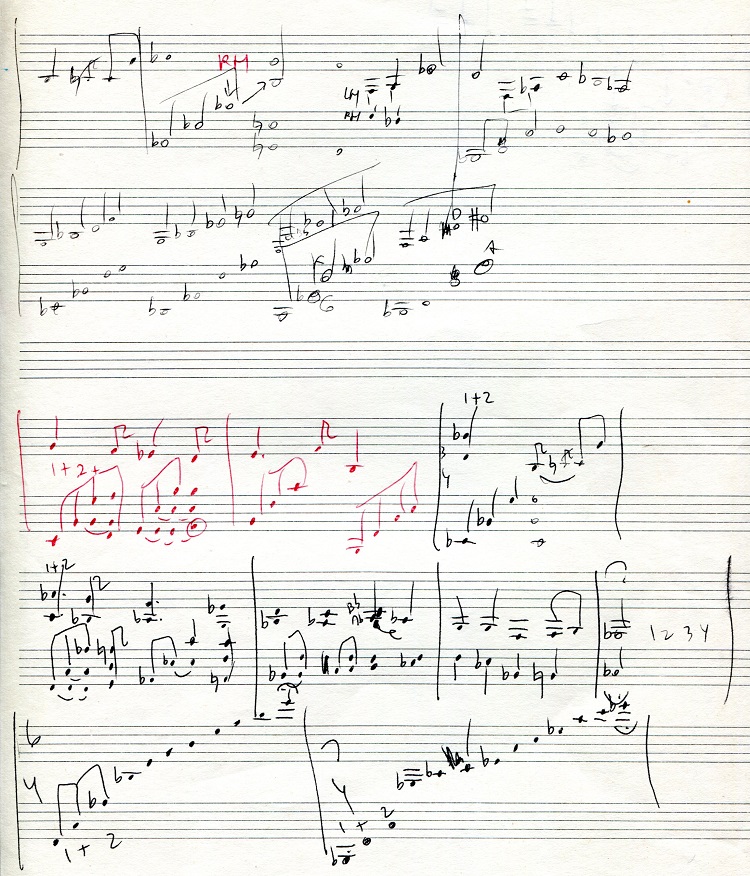 RH
LH
RH
A
G
1+2
1+2+
3
4
1+2
1 2 3 4
6
4
4
1+2
1+2